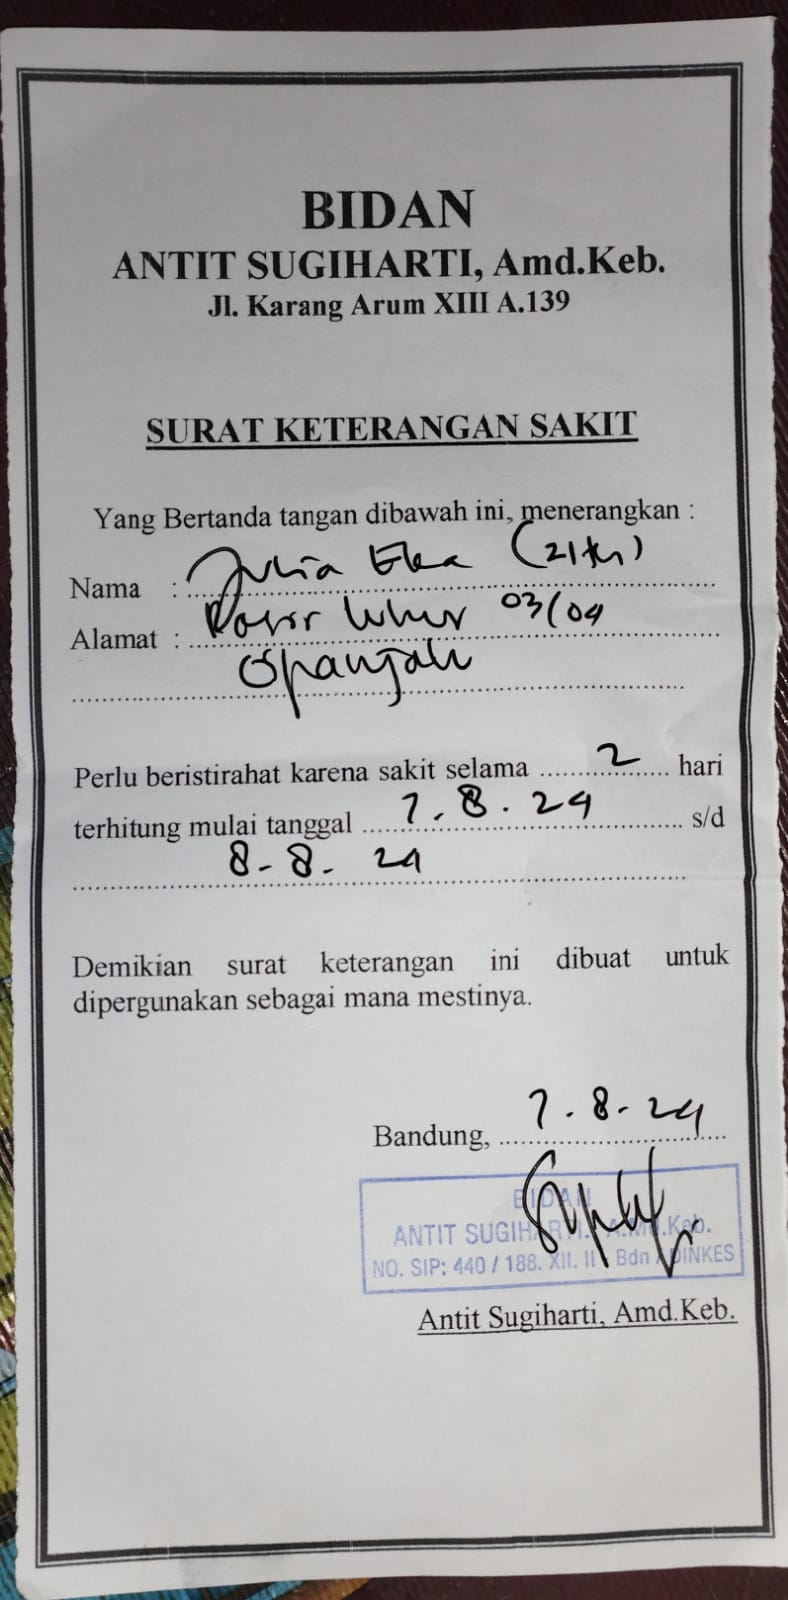 BIDAN
ANTIT SUGIHARTI, Amd.Keb.
Jl. Karang Arum XIII A.139
SURAT KETERANGAN SAKIT
Yang Bertanda tangan dibawah ini, menerangkan :
Nama : Julia Eka (21th)
Alamat : 03/04
Perlu beristirahat karena sakit selama 2 hari
terhitung mulai tanggal 7.8.24 s/d
8-8-24
Demikian surat keterangan ini dibuat untuk
dipergunakan sebagai mana mestinya.
Bandung, 7-8-24
BIDAN
ANTIT SUGIHARTI, A.Md.Keb.
NO. SIP: 440 / 188. XII. II Bdn DINKES
Antit Sugiharti, Amd.Keb.